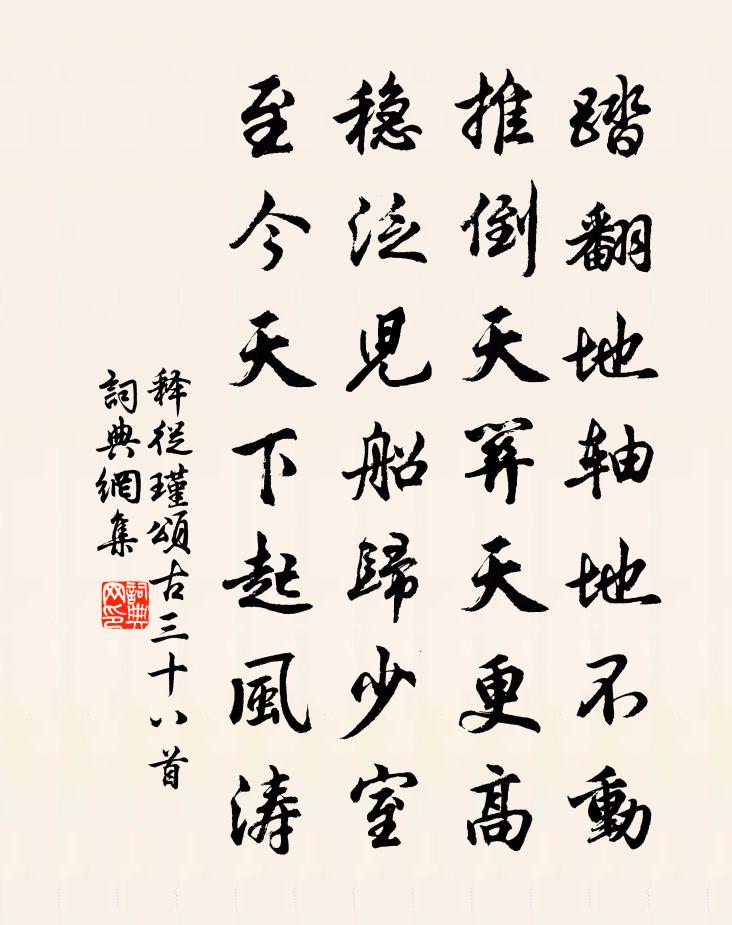 踏翻地轴地不動
推倒天關天更高
稳泛児船歸少室
至今天下起風涛
释従瑾頌古三十八首
詞典網集
詞典
网印